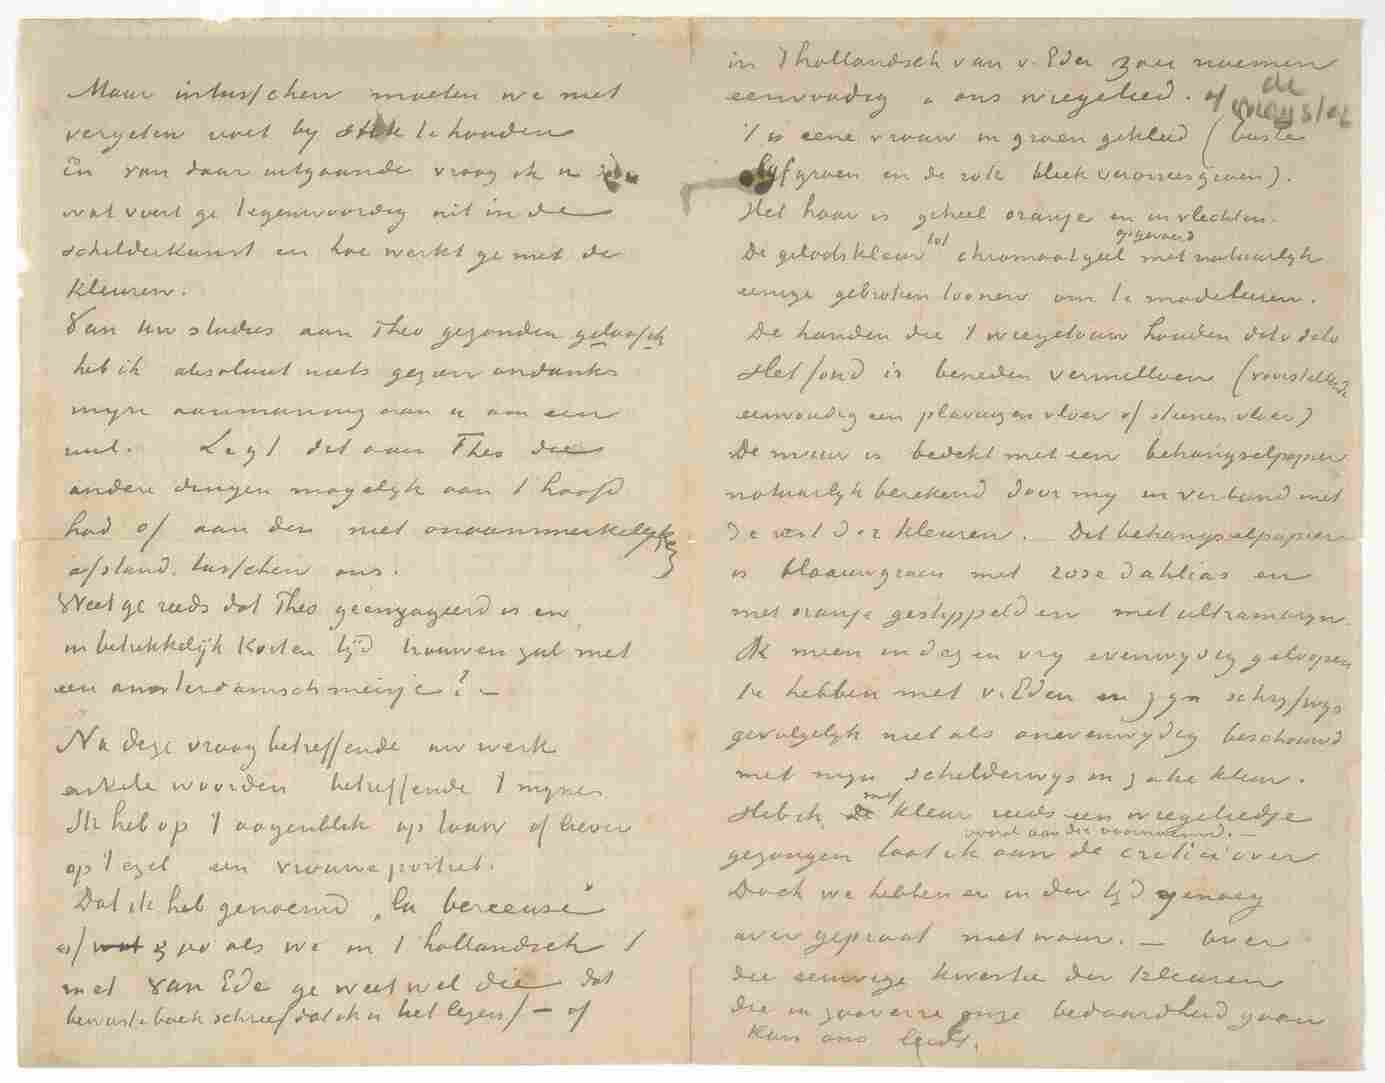 Maar intusschen moeten we niet
vergeten voet by stuk te houden
en van daar uitgaande vraag ik u
wat voert ge tegenwoordig uit in de
schilderkunst en hoe werkt ge met de
kleuren.
Van uw studies aan Theo gezonden geloof ik
heb ik absoluut niets gezien ondanks
myn aanmaning aan u om een
ruil. Legt dit aan Theo die
andere dingen mogelyk aan 't hoofd
had of aan den niet onaanmerkelyken
afstand tusschen ons.
Weet ge reeds dat Theo geëngageerd is en
in betrekkelijk korten tyd trouwen zal met
een amsterdamsch meisje? –
Na deze vraag betreffende uw werk
enkele woorden betreffende 't myne.
Ik heb op 't oogenblik op touw of liever
op 't ezel een vrouweportret.
Dat ik heb genoemd „la berceuse”
of wat zoo als we in 't hollandsch
met van Ede ge weet wel die dat
bewuste boek schreef dat ik u het lezen – of
in 't hollandsch van v. Eden zou noemen
eenvoudig ons wiegelied. of de wiegster
't is eene vrouw in groen gekleed (buste
olyfgroen en de rok bleek veroneesgroen).
Het haar is geheel oranje en in vlechten.
De gelaatskleur tot chromaatgeel opgevoerd met natuurlyk
eenige gebroken toonen om te modeleeren.
De handen die 't wiegetouw houden dito dito
Het fond is beneden vermilloen (voorstellende
eenvoudig een plavuizen vloer of steenen vloer)
De muur is bedekt met een behangselpapier
natuurlyk berekend door my in verband met
de rest der kleuren. Dit behangselpapier
is blaauwgroen met rose dahlias en
met oranje gestippeld en met ultramaryn.
Ik meen in dezen vry evenwydig geloopen
te hebben met v. Eden en zyn schryfwys
gevolgelyk niet als onevenwydig beschouwd
met myn schilderwys in zake kleur.
Heb ik de met kleur reeds een wiegeliedje
gezongen laat ik aan de critici over vooral aan die voornoemd. –
Doch we hebben er in der tyd genoeg
over gepraat niet waar. – Over
die eeuwige kwestie der kleuren
die in zooverre onze bedaardheid gaan
kan ons leidt.